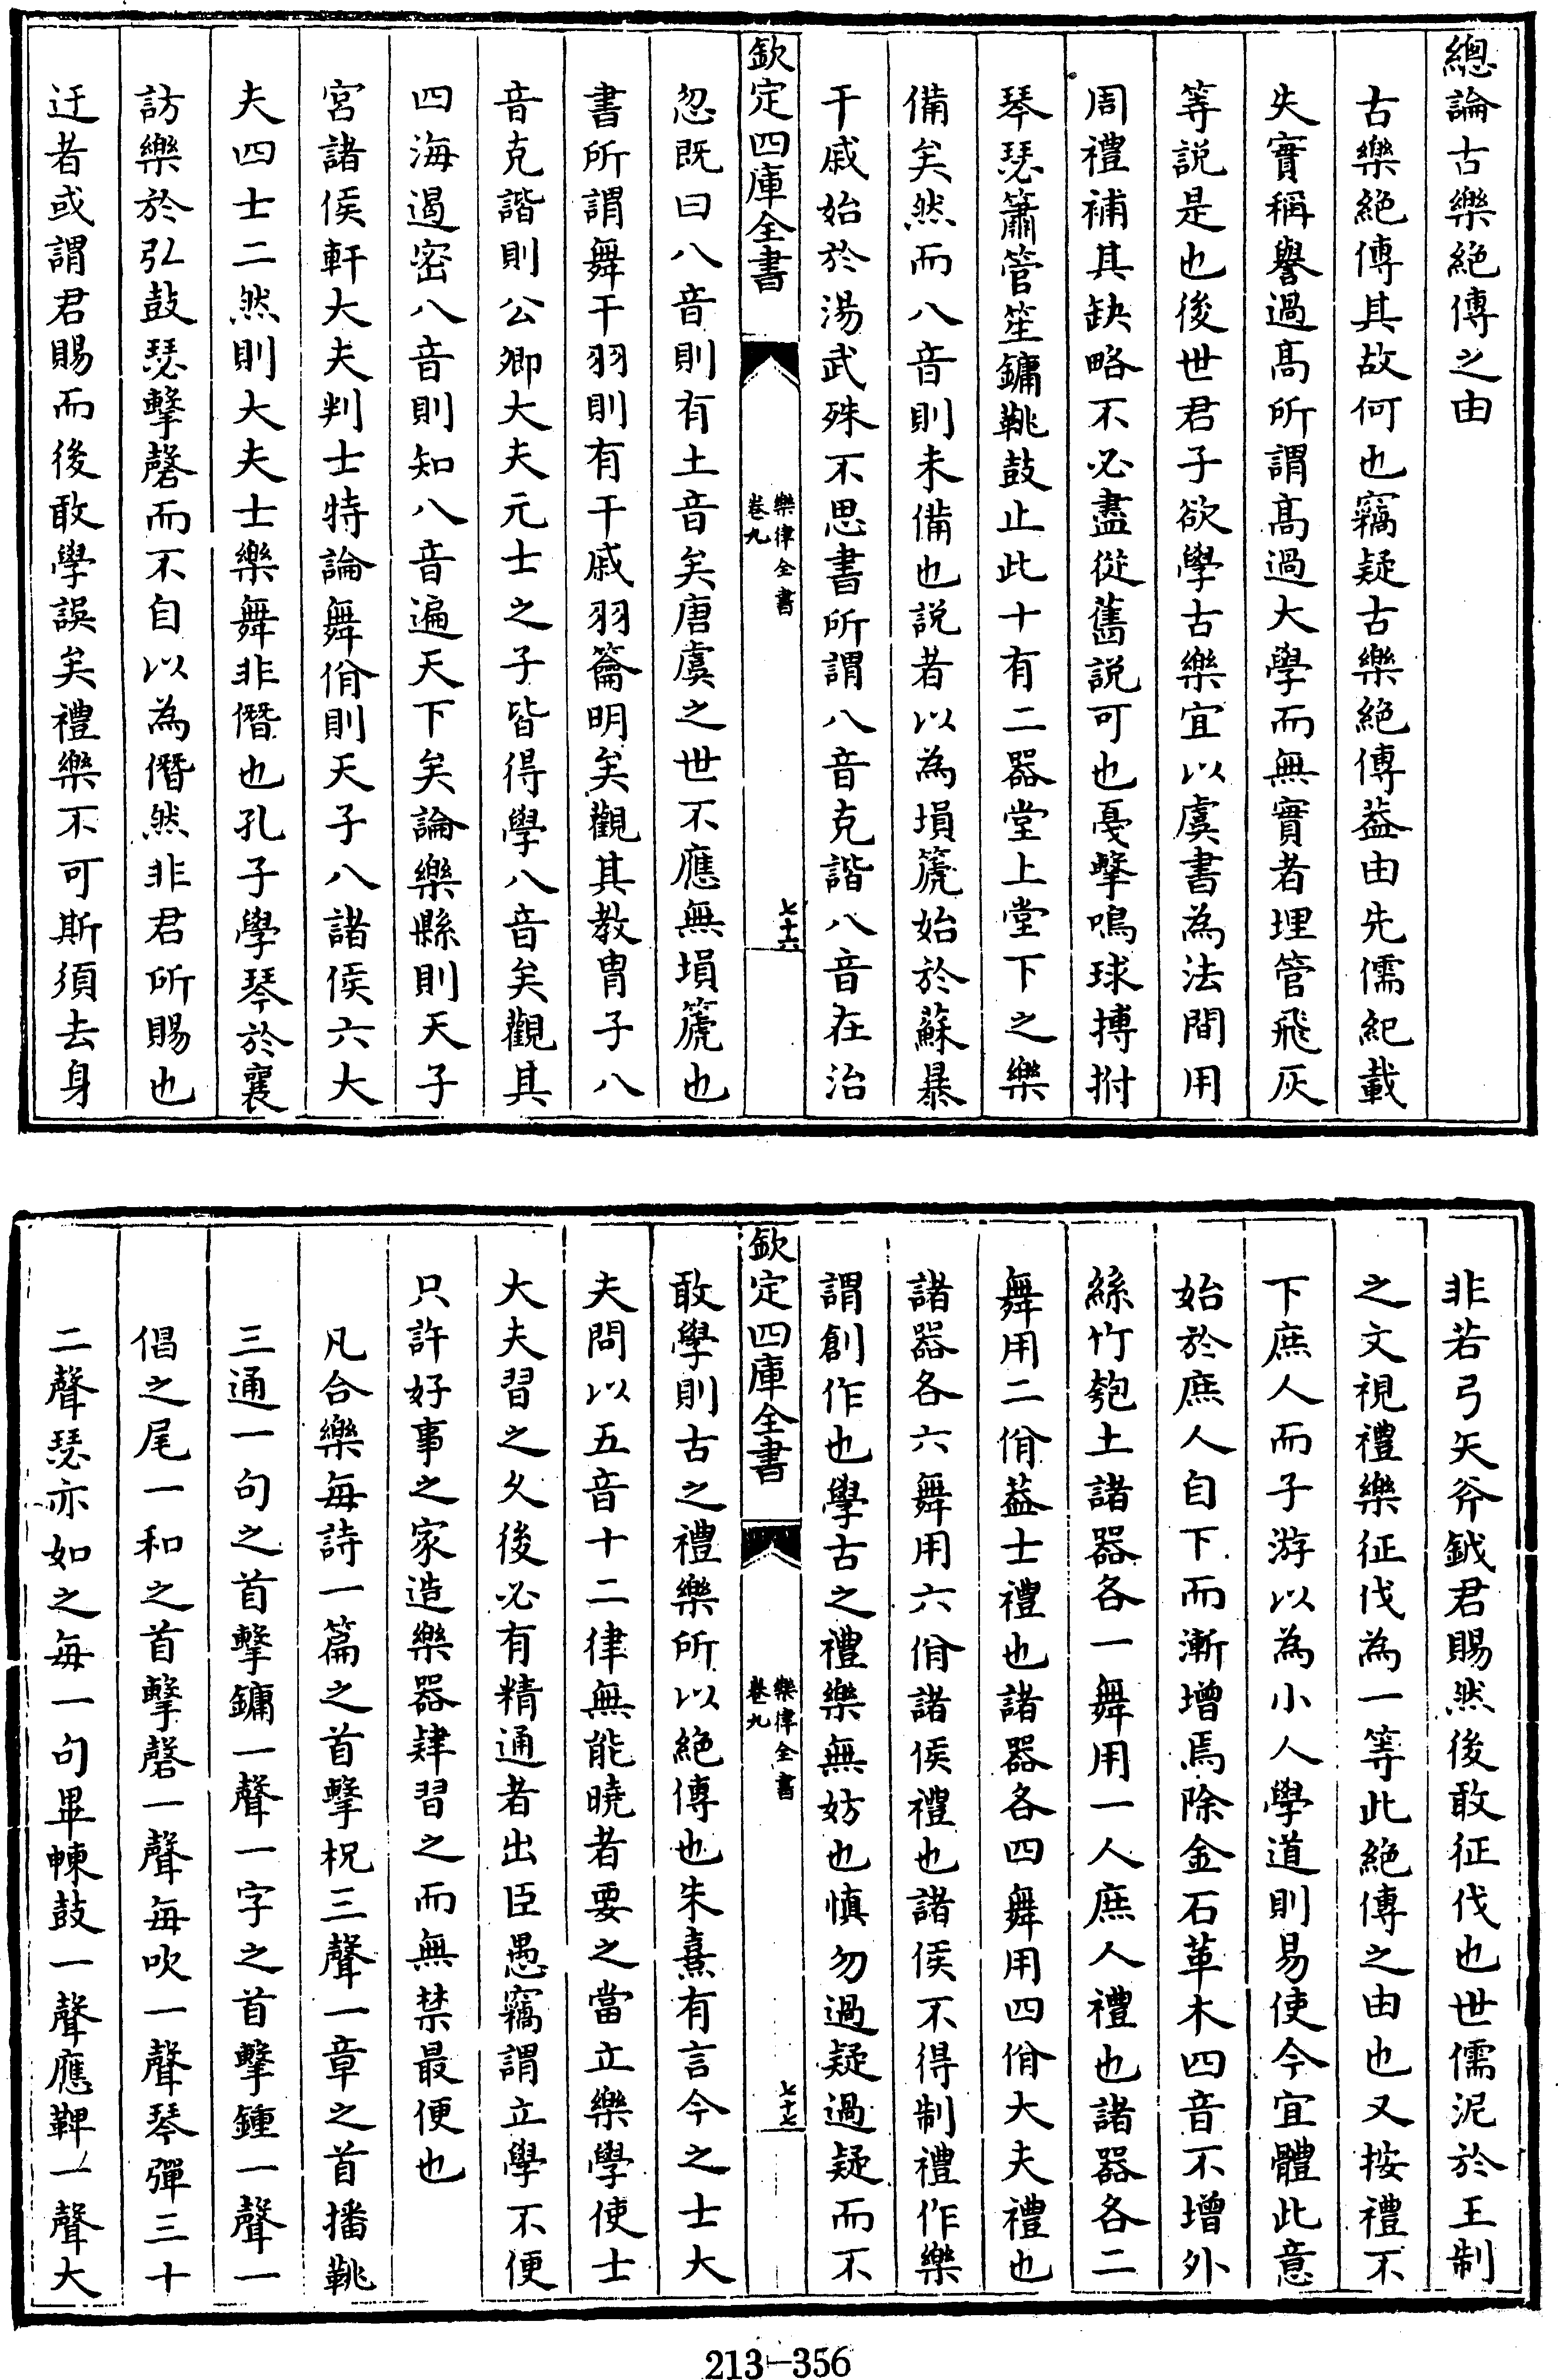 總論古樂絶傳之由
古樂絶傳其故何也竊疑古樂絶傳葢由先儒紀載
失實稱譽過髙所謂髙過大學而無實者埋管飛灰
等説是也後世君子欲學古樂宜以虞書為法間用
周禮補其缺略不必盡從舊説可也戞擊鳴球搏拊
琴瑟簫管笙鏞鞉鼓止此十有二器堂上堂下之樂
備矣然而八音則未備也説者以為塤篪始於蘇暴
干戚始於湯武殊不思書所謂八音克諧八音在治
欽定四庫全書
樂律全書
卷九
七十六
忽既曰八音則有土音矣唐虞之世不應無塤篪也
書所謂舞干羽則有干戚羽籥明矣觀其教胄子八
音克諧則公卿大夫元士之子皆得學八音矣觀其
四海遏密八音則知八音遍天下矣論樂縣則天子
宮諸侯軒大夫判士特論舞佾則天子八諸侯六大
夫四士二然則大夫士樂舞非僭也孔子學琴於襄
訪樂於弘鼓瑟擊磬而不自以為僭然非君所賜也
迂者或謂君賜而後敢學誤矣禮樂不可斯須去身
非若弓矢斧鉞君賜然後敢征伐也世儒泥於王制
之文視禮樂征伐為一等此絶傳之由也又按禮不
下庶人而子游以為小人學道則易使今宜體此意
始於庶人自下而漸增焉除金石革木四音不增外
絲竹匏土諸器各一舞用一人庶人禮也諸器各二
舞用二佾葢士禮也諸器各四舞用四佾大夫禮也
諸器各六舞用六佾諸侯禮也諸侯不得制禮作樂
謂創作也學古之禮樂無妨也慎勿過疑過疑而不
欽定四庫全書
樂律全書
卷九
七十七
敢學則古之禮樂所以絶傳也朱熹有言今之士大
夫問以五音十二律無能曉者要之當立樂學使士
大夫習之久後必有精通者出臣愚竊謂立學不便
只許好事之家造樂器肄習之而無禁最便也
凡合樂每詩一篇之首擊柷三聲一章之首播鞉
三通一句之首擊鏞一聲一字之首擊鍾一聲一
倡之尾一和之首擊磬一聲每吹一聲琴彈三十
二聲瑟亦如之每一句畢㯥鼓一聲應鞞一聲大
213-356